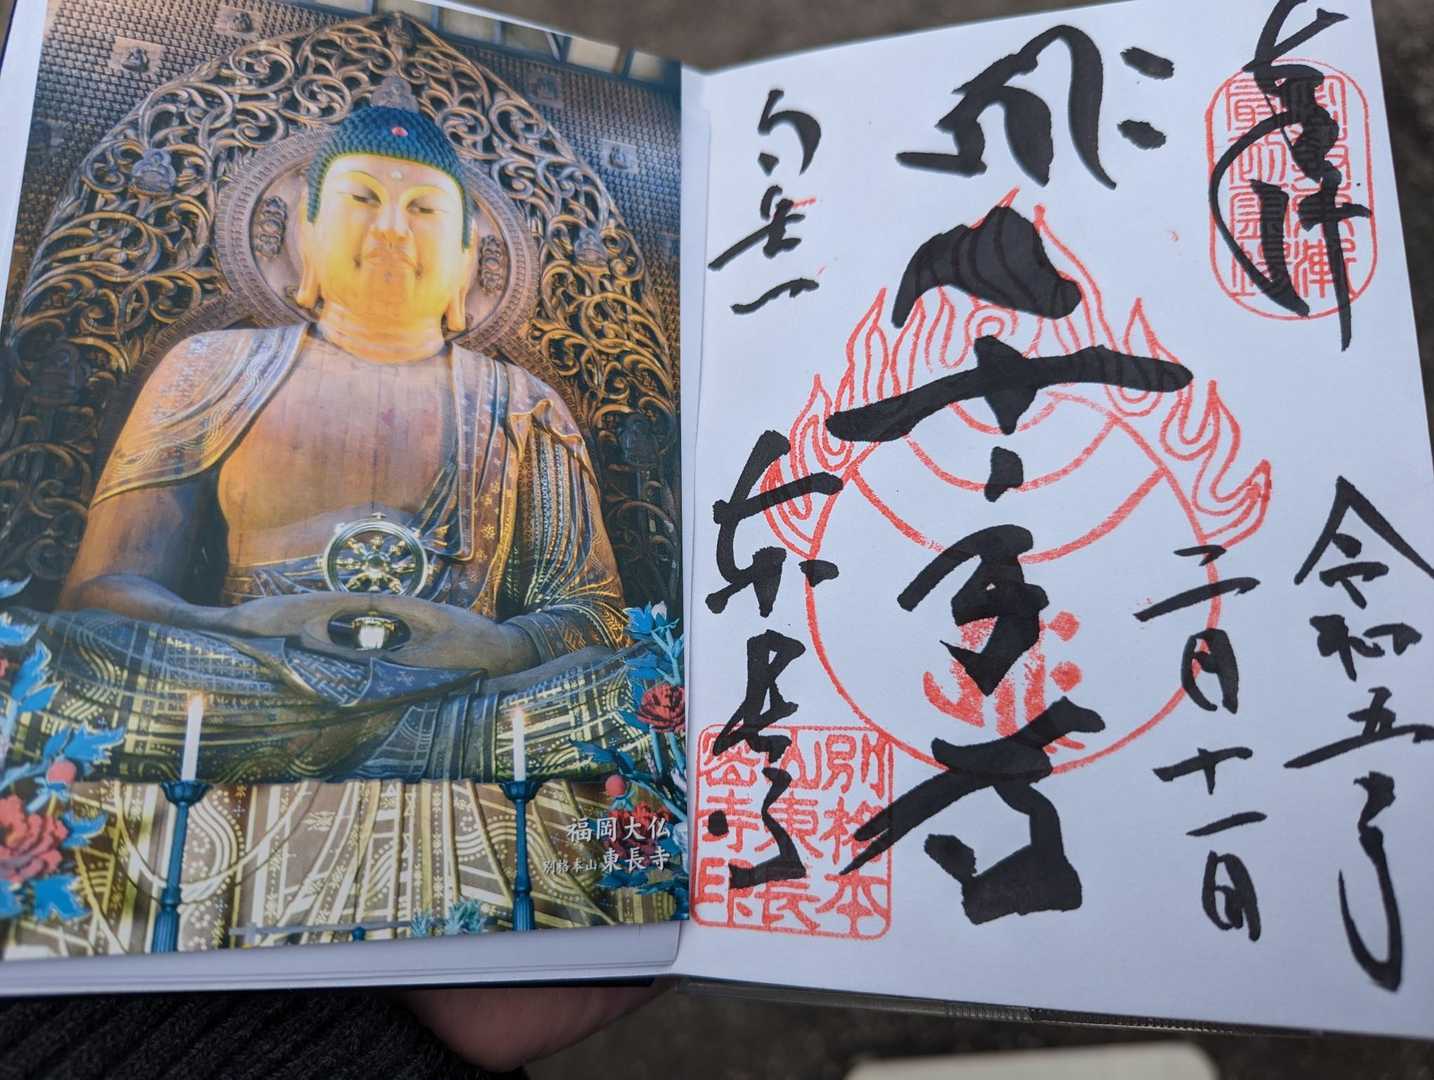 奉拝
密教東漸
最初霊場
令和五年
二月十一日
東長寺
別格本
山東長
密寺印
福岡大仏
別格本山 東長寺